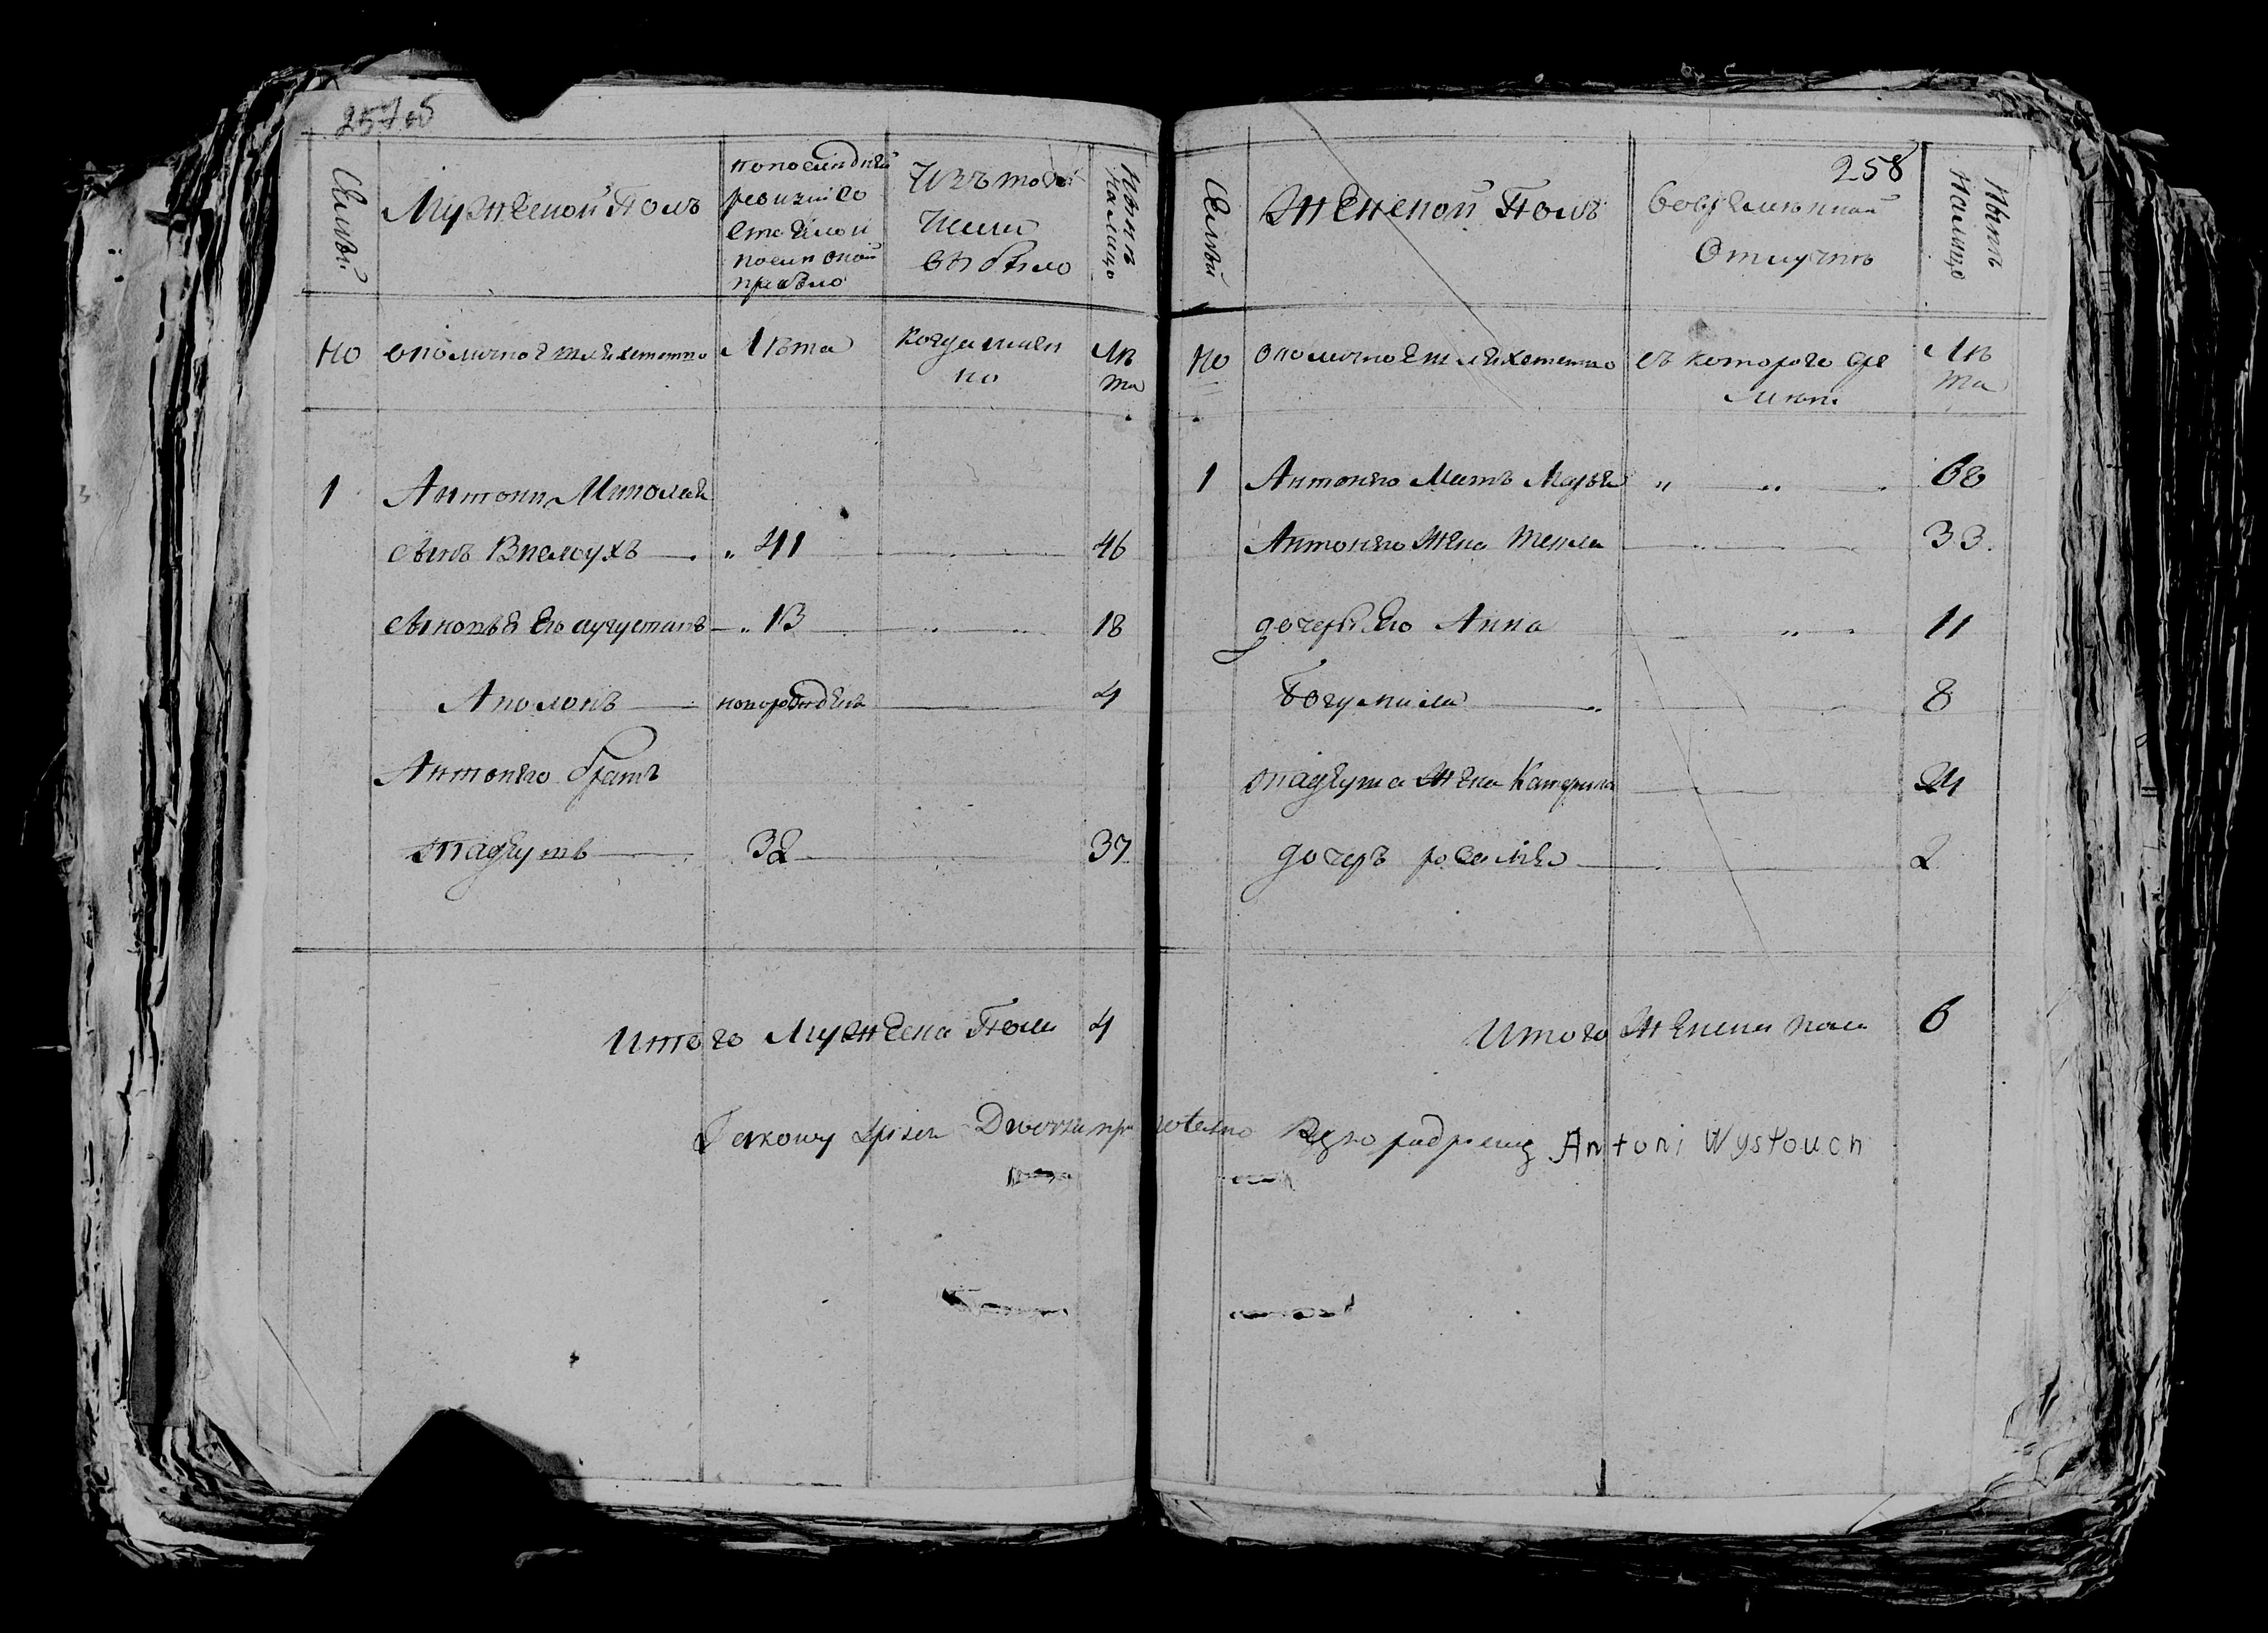 257об
Семьи
Мужеской Полъ
по последней
ревизіи со
стояло и
после оной
прибыло
Изъ того
числа
выбыло
Нынѣ
на лицо
№
околичное шляхетство
Лѣта
Когда имен
но
Лѣ
та
1
Антони Миколая
сынъ Вислоухъ
41
46
Сыновья Его Августинъ
13
18
Аполонъ
новорожденъ
4
Антонего братъ
Тадеушъ
32
37
Итого Мужеска Пола 4
258
Семьи
Женской Полъ
Вовременной
Отлучке
Нынѣ
Налицо
№
околичное шляхетство
съ которого вре
мени
Лѣ
та
1
Антонего Мать Марья
68
Антонего Жена Текля
33
дочери Его Анна
11
Богумила
8
Тадеуша Жена Катрина
24
дочеръ розалия
2
Итого Женска пола 6
Antoni Wysłouch